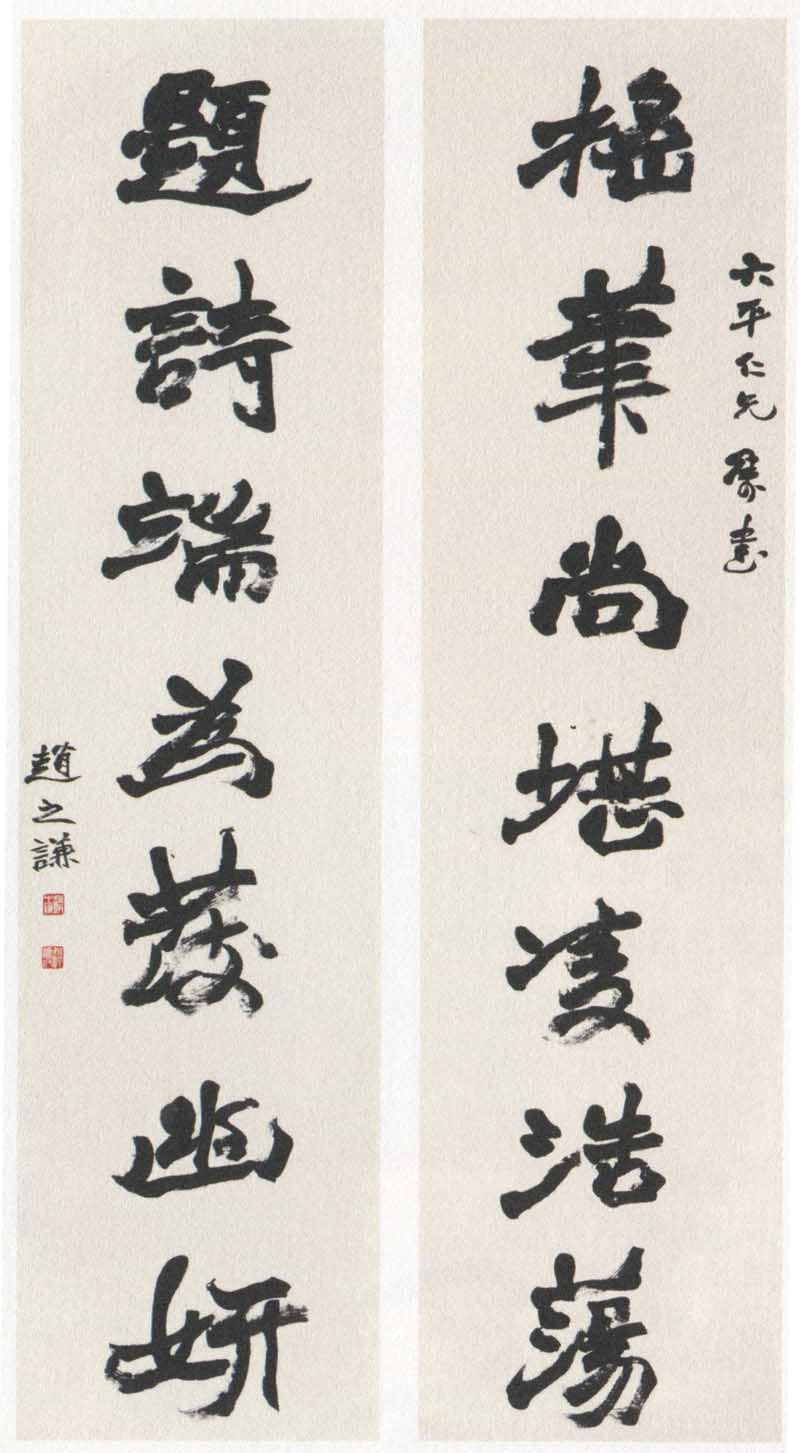 六平仁兄屬書
搖筆尚堪凌浩蕩
題詩端為發幽妍
趙之謙